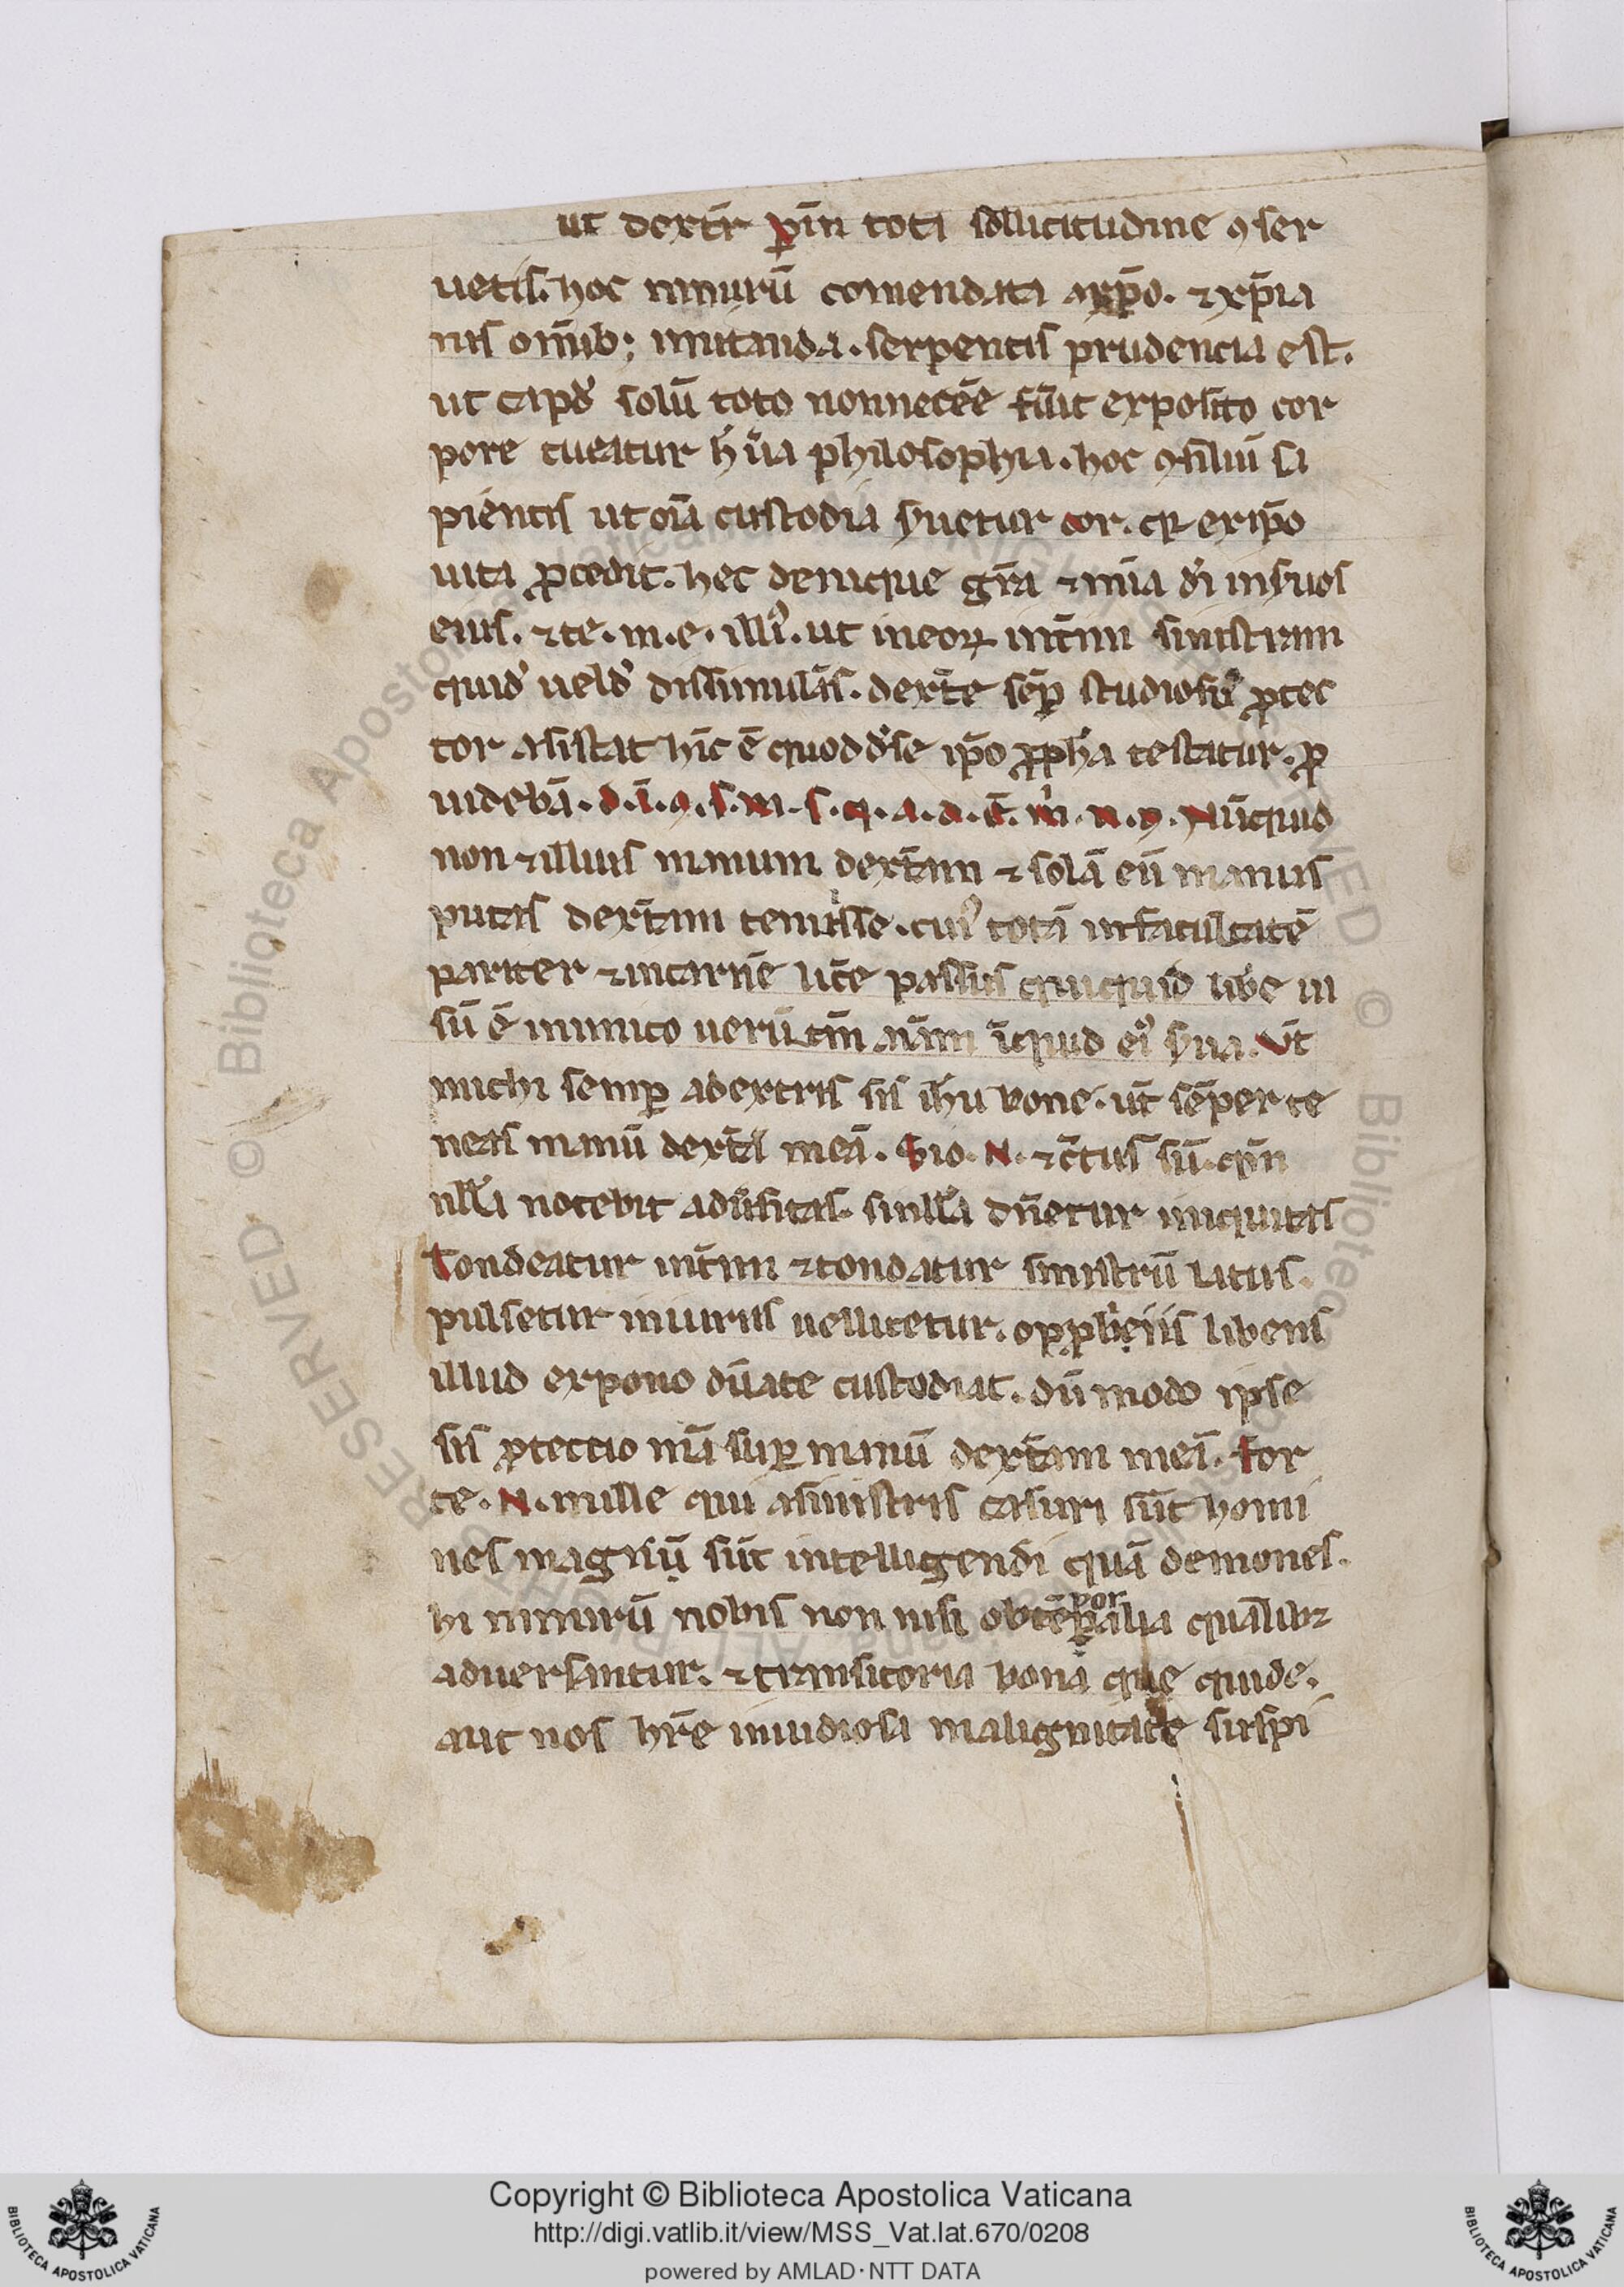 ut dext̄r p̲in tota sollicitudine ꝯser
uetis. hoc nimirū comendata axp̄o. ⁊ xp̄ia
nis om̄ib; imitanda. serpentis prudencia est.
ut capđ solū toto non necēe fūit exposito cor
pore tueatur h̄ ūa philosophia. hoc ꝯsiliū sa
pientis ut oīa custodia s̄uetur cor. qꝛ ex ip̄o
uita ꝓcedit. hec denique gr̄a ⁊ mīa dī in s̄uos
eius. ⁊ te. in. e. illi᾿. ut in eoꝝ int̄im sinistram
quid᾿ uelđ dissimulās. dext̄e sēꝑ studiosus ꝓtec
tor assistat hīc ē quod đ se ip̄o ꝓph̄a testatur. ꝓ
uidebā. d. ī. ꝯ. s. m. s. q. a. d. ē. m̄. n. ꝯ. Nūquid
non ⁊ illius manum dext̄am ⁊ solā eū manus
putas dext̄am tenuisse. cui᾿ totā in facultatē
pariter ⁊ in carnē lic̄e passus quicquid libe ui
sū ē inimico uerūt̄m aīam īquid ei᾿ s̄ua. Vt̄
michi semꝑ adextris sis ih̄u bone. ut̄ sēper te
neas manū dext̄a meā. Sio. N. ⁊ c̄tus sū. q̄n
nll̄a nocebit adūsitas. si nll̄a dn̄etur iniquitas
Tondeatur int̄im ⁊ tondatur sinistrū latus.
pulsetur iniuriis uellicetur. opꝓbriis libens
illud expono dū a te custodiat. dū modo ipse
sis ꝓteccio mā suꝑ manū dext̄am meā. for
te. N. mille qui asinistris casuri sūt homi
nes magnū sūt intelligendi quā demones.
hi nimirū nobis non nisi ob tēporalia quālibꝫ
aduersantur. ⁊ transitoria bona que quide.
aut nos hr̄e inuidiosa malignitate suspi
Copyright © Biblioteca Apostolica Vaticana
http://digi.vatlib.it/view/MSS_Vat.lat.670/0208
powered by AMLAD·NTT DATA